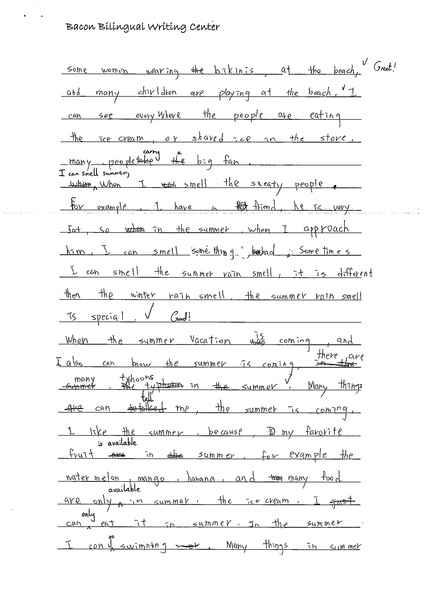 Bacon Bilingual Writing Center
some women wearing the bikinis, at the beach, Great!
and many children are playing at the beach, I
can see everywhere the people are eating
the ice cream, or shaved ice in the store,
carry a
many people take the big fan.
I can smell summer,
when, When I was smell the sweaty people.
For example, I have a friend, he is very
fat, so when in the summer, when I approach
him, I can smell something bad. Sometimes
I can smell the summer rain smell, it is different
then the winter rain smell, the summer rain smell
is special. Good!
is
When the summer vacation was coming, and
there are
I also can know the summer is coming, in the
many typhoons
summer. the typhoon in the summer. Many things
tell
are can talked me, the summer is coming.
I like the summer, because, my farorite
is available
fruit are in the summer, for example the
water melon, mango, banana, and many food
available
are only in summer, the ice cream. I just
only
can eat it in summer. In the summer
I can swimming. Many things in summer